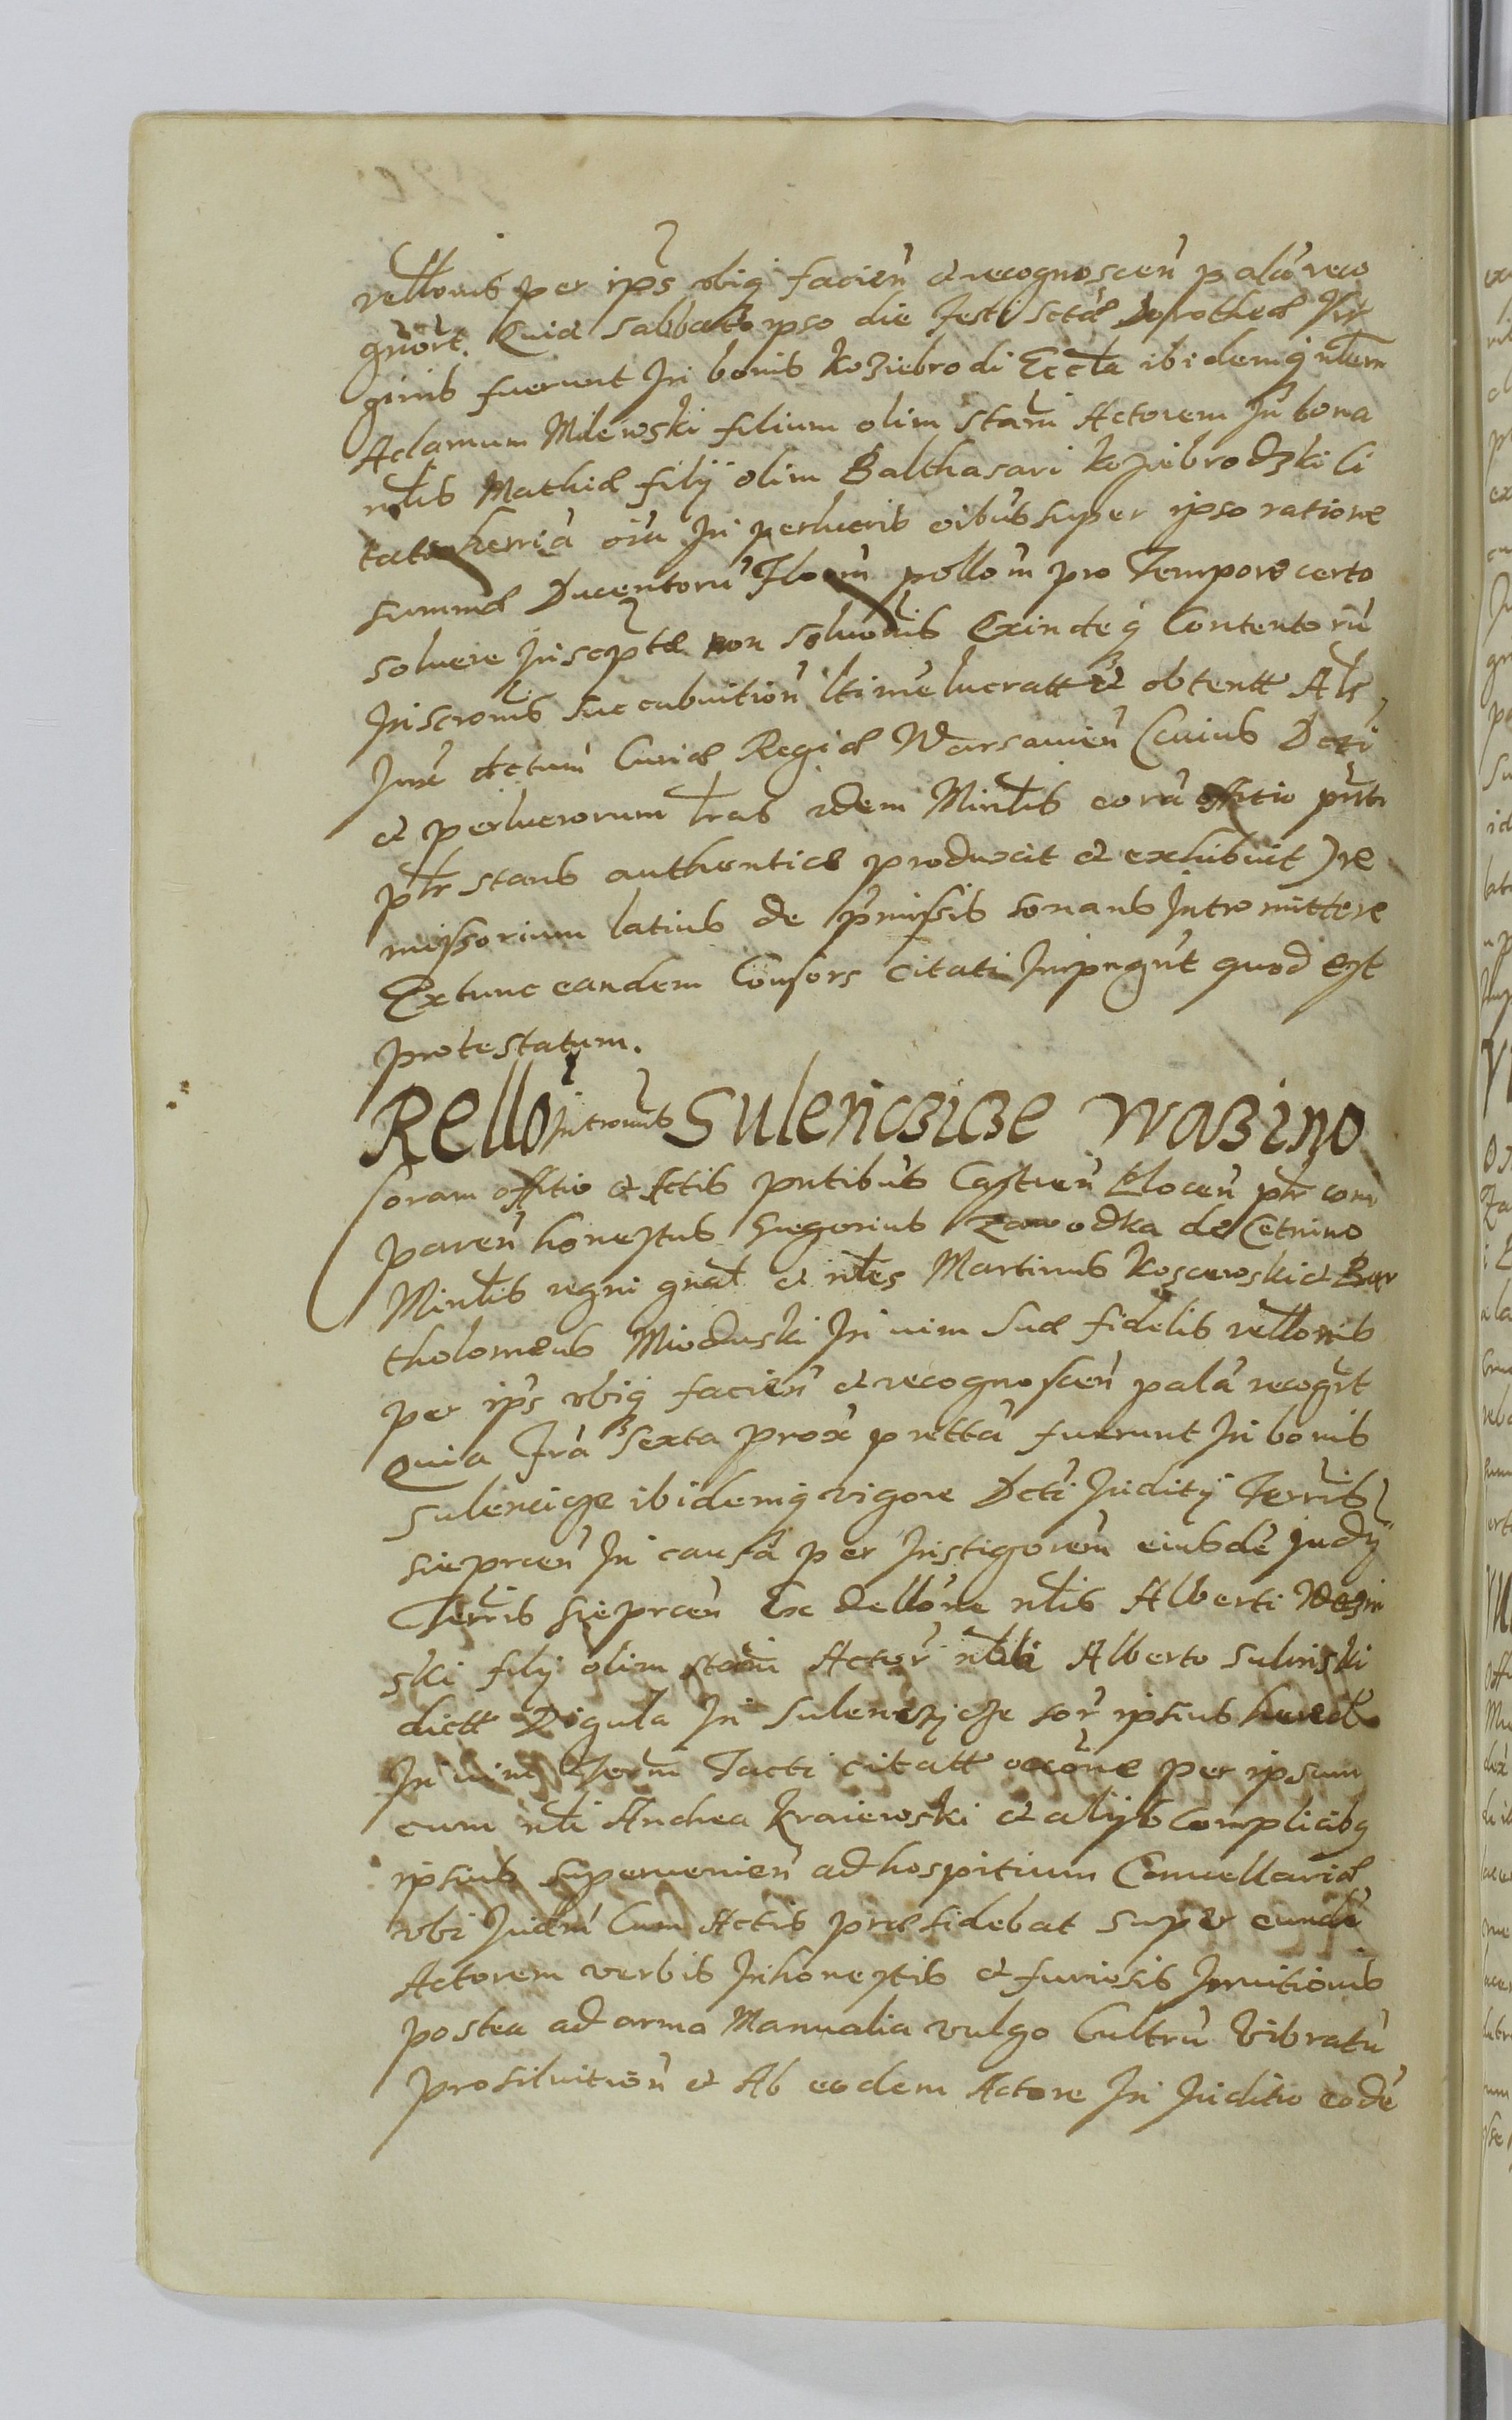 rellonis per ips obig facien et recognoscen palā reco
gnort. Quia Sabbato ipso die festi Sctæ Dorotheæ Vir
ginis fuerunt In bonis Koziebrodi Eccla ibidemq nlem
Adamum Milewski filium olim Stani Actorem In bona
nlis Mathiæ filÿ olim Balthasari Koziebrodzki Ci
tati herria oia In perlucris oibus super ipso ratione
summæ Ducentoru Florm pollom pro Tempore certo
soluere Inscptæ non Soluonis Exindeq Contentoru
Inscronis succubuition ltime lucratt et obtentt Als
Juxe dctum Curiæ Regiæ Warsauien (cuius Dcti
et perlucrorum lras idem Minlis corā offitio pnti
plr stans authentice produxit et exhibuit) re
missorium latius de pmissis sonans Intromittere
Extunc eandem Consors Citati Impugnt quod est
protestatum.
Rello Intromis SulencziczE Wazino
Coram offitio et Actis pntibus Castren Plocen plr com
paren honestus Gregorius Zawodka de Cetnino
Minlis regni gnal et nles Martinus Koscewski et Bar
tholomeus Mioduski In vim Suæ fidelis rellonis
per ips obig facien et recognoscen palā recognt
Quia Fra Sexta prox prettā fuerunt In bonis
Sulencicze ibidemq vigore Dcti Juditÿ Terris
Sieprcen In causa per Instigorem eiusdē Judÿ
Terris Sieprcen Ex dellone nlis Alberti Wazin
ski filÿ olim Stani Actor nlbli Alberto Sulinski
dictt Rigula In Sulenczycze sor ipsius hered
In vim Term Tacti citatt occone per ipsum
cum nli Andrea Kraiewski et alÿs Complicibq
ipsius superuenien ad hospitium Cancellariæ
ubi Judm Cum Actis præsidebat super eundē
Actorem verbis Inhonestis et furiosis Irruitionis
postea ad arma Manualia vulgo Cultru Vibratu
prosiluition et Ab eodem Actore In Juditio eodē